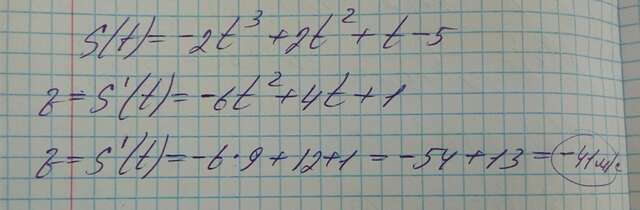 S(t) = -2t³ + 2t² + t - 5
v = S'(t) = -6t² + 4t + 1
v = S'(t) = -6·9 + 12 + 1 = -54 + 13 = -41 м/с